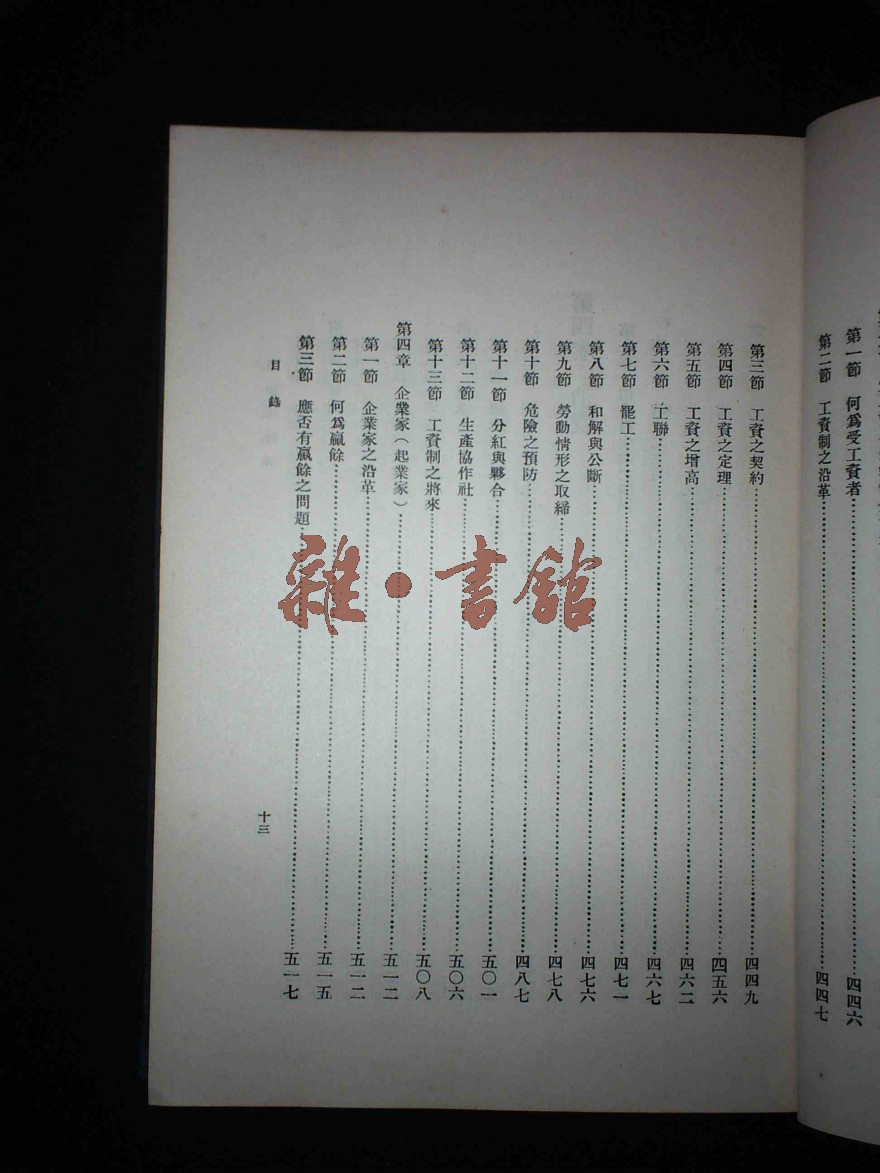 第一節　何爲受工資者……四四六
第二節　工資制之沿革……四四七
第三節　工資之契約……四四九
第四節　工資之定理……四五六
第五節　工資之增高……四六二
第六節　工聯……四六七
第七節　罷工……四七一
第八節　和解與公斷……四七六
第九節　勞動情形之取締……四七八
第十節　危險之預防……四八七
第十一節　分紅與夥合……五〇一
第十二節　生產協作社……五〇六
第十三節　工資制之將來……五〇八
第四章　企業家（起業家）……五一二
第一節　企業家之沿革……五一二
第二節　何爲贏餘……五一五
第三節　應否有贏餘之問題……五一七
目錄
十三
雜·書館